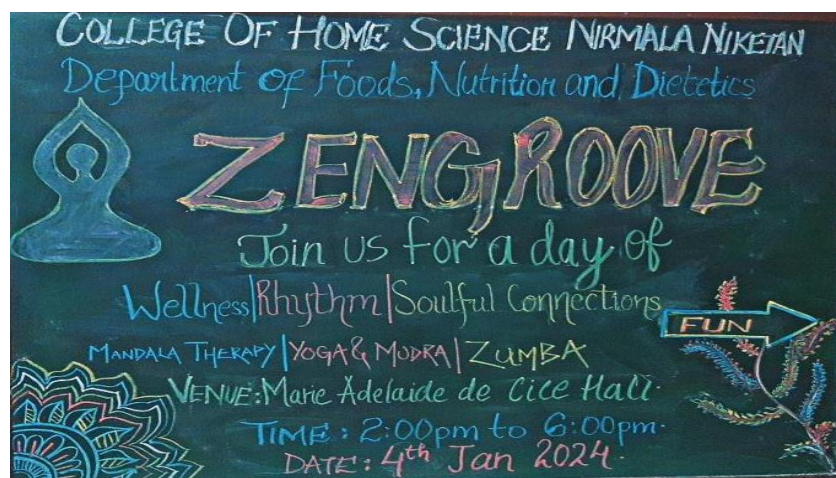 COLLEGE OF HOME SCIENCE NIRMALA NIKETAN
Department of Foods, Nutrition and Dietetics
ZENGROOVE
Join us for a day of
Wellness|Rhythm|Soulful Connections
FUN
MANDALA THERAPY|YOGA & MUDRA|ZUMBA
VENUE: Marie Adelaide de Cice Hall.
TIME: 2:00pm to 6:00pm.
DATE: 4th Jan 2024.